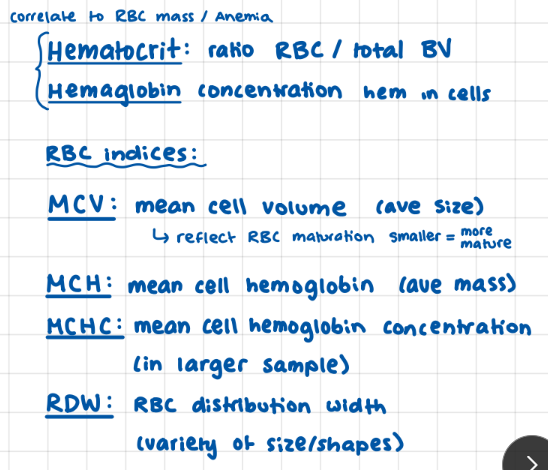 correlate to RBC mass / Anemia
Hematocrit: ratio RBC / total BV
Hemaglobin concentration hem in cells
RBC indices:
MCV: mean cell volume (ave size)
↳ reflect RBC maturation smaller = more mature
MCH: mean cell hemoglobin (ave mass)
MCHC: mean cell hemoglobin concentration
(in larger sample)
RDW: RBC distribution width
(variety of size/shapes)